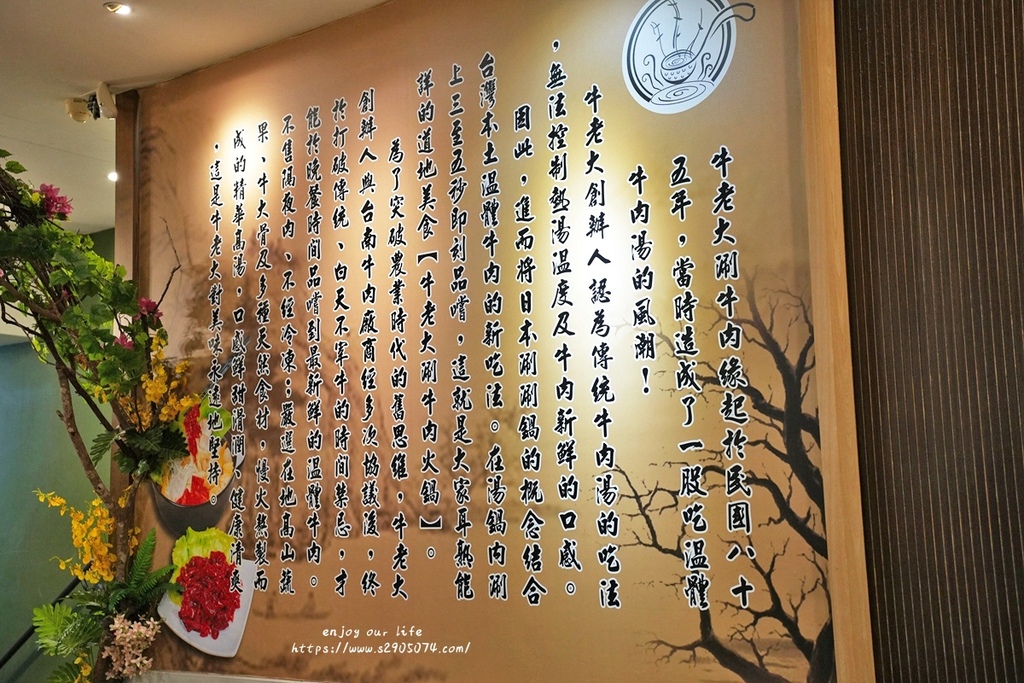 牛老大涮牛肉緣起於民國八十
五年，當時造成了一股吃溫體
牛肉湯的風潮！
牛老大創辦人認為傳統牛肉湯的吃法
，無法控制熱湯溫度及牛肉新鮮的口感。
因此，進而將日本涮涮鍋的概念結合
台灣本土溫體牛肉的新吃法。在湯鍋內涮
上三至五秒即刻品嚐，這就是大家耳熟能
詳的道地美食【牛老大涮牛肉火鍋】。
為了突破農業時代的舊思維，牛老大
創辦人與台南牛肉廠商經多次協議後，終
於打破傳統、白天不宰牛的時間禁忌，才
能於晚餐時間品嚐到最新鮮的溫體牛肉。
不售隔夜肉、不經冷凍；嚴選在地高山蔬
果、牛大骨及多種天然食材，慢火熬製而
成的精華高湯，口感鮮甜滑潤、健康清爽
，這是牛老大對美味永遠地堅持。
enjoy our life
https://www.s2905074.com/